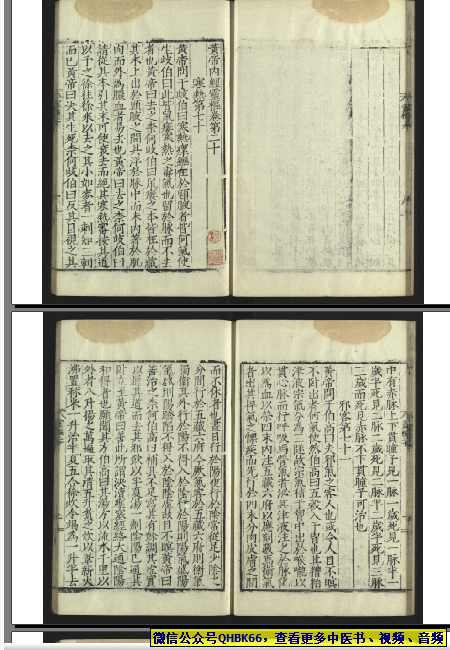 黃帝内經靈樞卷第二十
寒熱第七十
黃帝問于岐伯曰寒熱瘰癧在於頸腋者皆何氣使
生岐伯曰此皆鼠瘻寒熱之毒氣也留於脉而不去
者也黃帝曰去之柰何岐伯曰鼠瘻之本皆在於藏
其末上出於頸腋之間其浮於脉中而未内著於肌
肉而外爲膿血者易去也黃帝曰去之柰何岐伯曰
請從其本引其末可使衰去而絕其寒熱審按其道
以予之徐往徐來以去之其小如麥者一刺知三刺
而已黃帝曰决其生死柰何岐伯曰反其目視之其
中有赤脉上下貫瞳子見一脉一歲死見一脉半一
歲半死見二脉二歲死見二脉半二歲半死見三脉
三歲而死見赤脉不下貫瞳子可治也
邪客第七十一
黃帝問于伯高曰夫邪氣之客人也或令人目不瞑
不卧出者何氣使然伯高曰五穀入于胃也其糟粕
津液宗氣分為三隧故宗氣積于胷中出於喉嚨以
貫心脉而行呼吸焉營氣者泌其津液注之於脉化
以為血以榮四末内注五藏六府以應刻數焉衛氣
者出其悍氣之慓疾而先行於四末分肉皮膚之間
而不休者也晝日行於陽夜行於陰常從足少陰之
分間行於五藏六府今厥氣客於五藏六府則衛氣
獨衛其外行於陽不得入於陰行於陽則陽氣盛陽
氣盛則陽蹻陷不得入於陰陰虛故目不瞑黃帝曰
善治之柰何伯高曰補其不足寫其有餘調其虛實
以通其道而去其邪飲以半夏湯一劑陰陽已通其
卧立至黃帝曰善此所謂決瀆壅塞經絡大通陰陽
和得者也願聞其方伯高曰其湯方以流水千里以
外者八升揚之萬遍取其清五升煮之炊以葦薪火
沸置秫米一升治半夏五合徐炊令竭為一升半去
微信公众号QHBK66，查看更多中医书、视频、音频